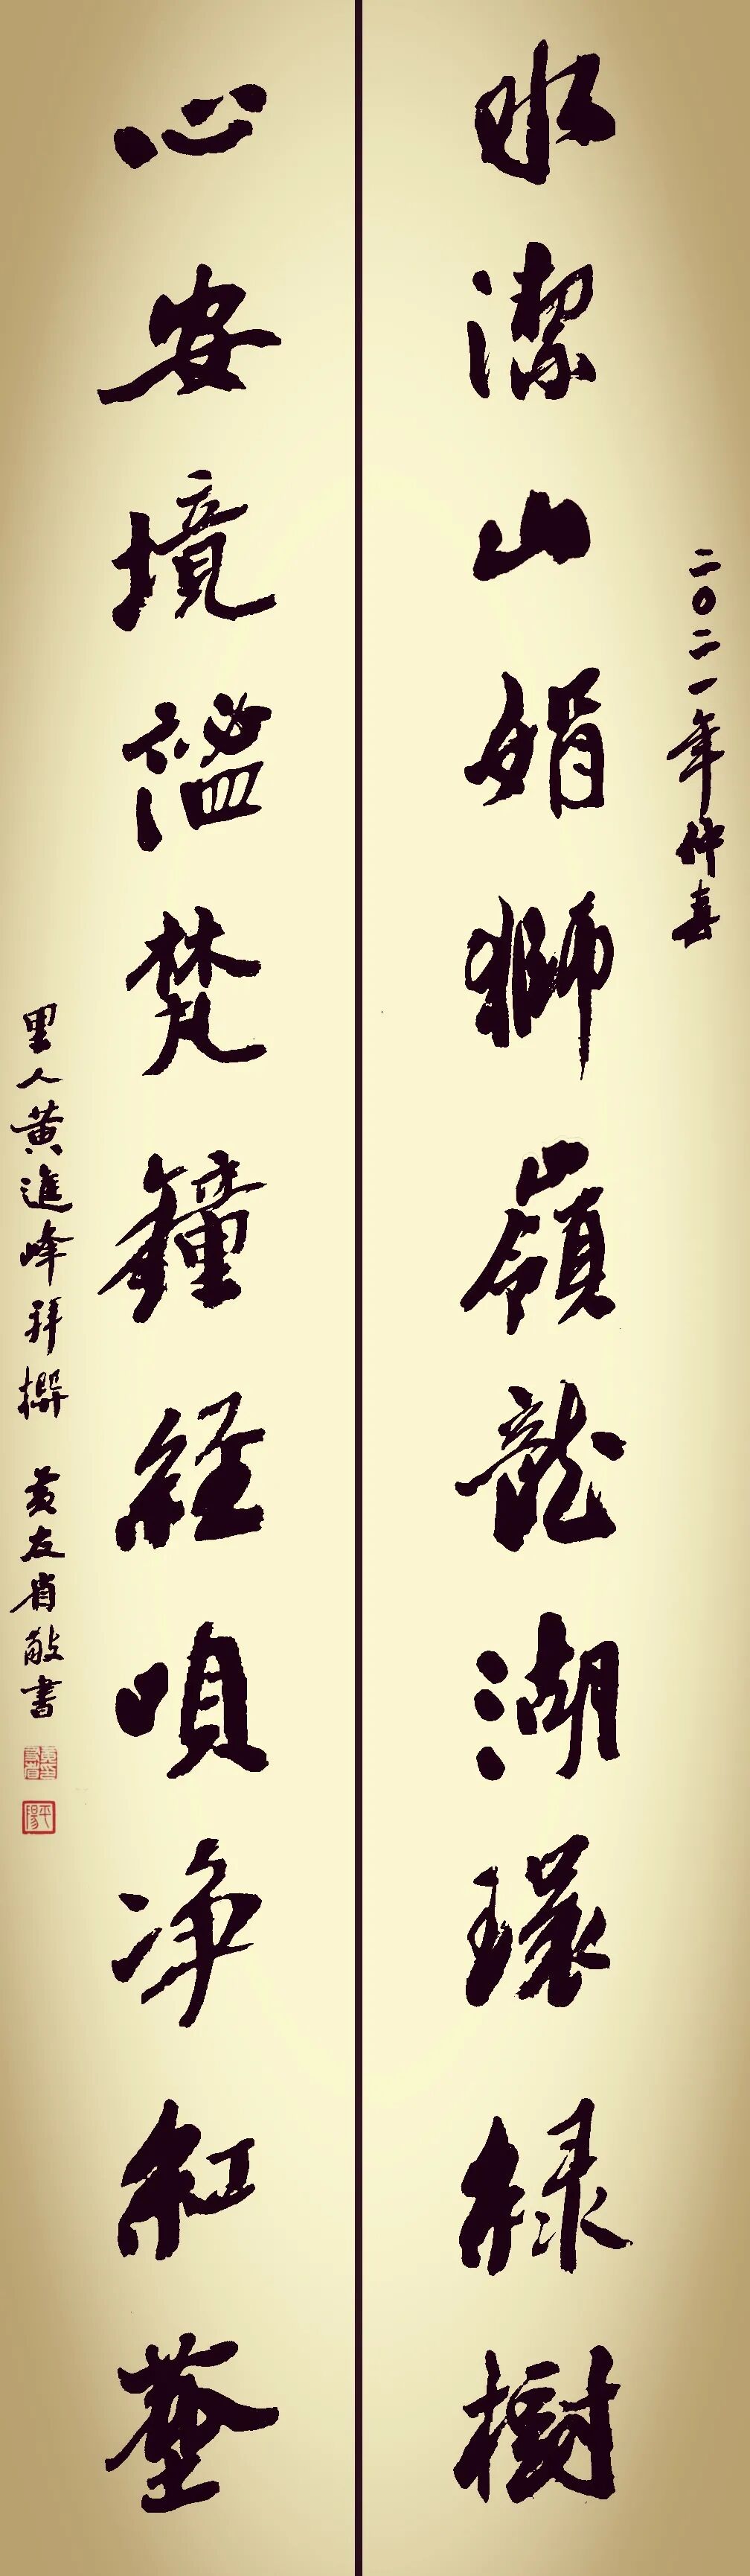 二〇二一年仲
水潔山娟獅嶺龍湖環緑樹
心安境謐梵鐘經唄净紅塵
里人黄進峰拜撰 黄友省敬書